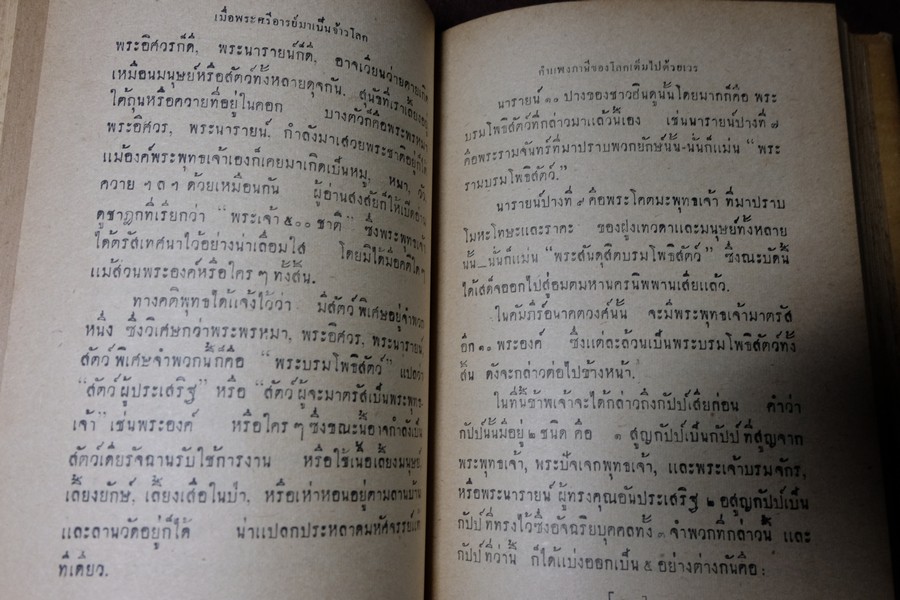 เมื่อพระศรีอารย์มาเป็นจ้าวโลก
พระอิศวรก็ดี, พระนารายน์ก็ดี, อาจเวียนว่ายตายเกิด
เหมือนมนุษย์หรือสัตว์ทั้งหลายดุจกัน. สุนัขที่เราเลี้ยงอยู่
ใต้ถุนหรือควายที่อยู่ในคอก บางตัวก็คือพระพรหมา
พระอิศวร, พระนารายน์. กำลังมาเสวยพระชาติอยู่ก็ได้
แม้องค์พระพุทธเจ้าเองก็เคยมาเกิดเป็นหมู, หมา, วัว
ควาย ฯลฯ ด้วยเหมือนกัน ผู้อ่านสงสัยก็ให้เปิดอ่าน
ดูชาฎกที่เรียกว่า “พระเจ้า ๕๐๐ ชาติ” ซึ่งพระพุทธเจ้า
ได้ตรัสเทศนาไว้อย่างน่าเลื่อมใส โดยมิได้มีอคติใดๆ
แม้ส่วนพระองค์หรือใครๆ ทั้งสิ้น.
ทางคติพุทธได้แจ้งไว้ว่า มีสัตว์พิเศษอยู่จำพวก
หนึ่ง ซึ่งวิเศษกว่าพระพรหมา, พระอิศวร, พระนารายน์,
สัตว์พิเศษจำพวกนี้ก็คือ “พระบรมโพธิสัตว์” แปลว่า
“สัตว์ผู้ประเสริฐ” หรือ “สัตว์ผู้จะมาตรัสเป็นพระพุทธ-
เจ้า” เช่นพระองค์ หรือใครๆ ซึ่งขณะนี้อาจกำลังเป็น
สัตว์เดียรัจฉานรับใช้การงาน หรือใช้เนื้อเลี้ยงมนุษย์,
เลี้ยงยักษ์, เลี้ยงเสือในป่า, หรือเห่าหอนอยู่ตามลานบ้าน
และลานวัดอยู่ก็ได้ น่าแปลกประหลาดมหัศจรรย์แท้
ทีเดียว.
กำแพงภาษีของโลกเต็มไปด้วยเวร
นารายน์ ๑๐ ปางของชาวฮินดูนั้นโดยมากก็คือ พระ
บรมโพธิสัตว์ที่กล่าวมาแล้วนี้เอง เช่นนารายน์ปางที่ ๗
คือพระรามจันทร์ที่มาปราบพวกยักษ์นั้น-นั่นก็แม่น “พระ
รามบรมโพธิสัตว์.”
นารายน์ปางที่ ๙ คือพระโคตมะพุทธเจ้า ที่มาปราบ
โมหะโทษะและราคะ ของฝูงเทวดาและมนุษย์ทั้งหลาย
นั้น_นั่นก็แม่น “พระสันดุสิตบรมโพธิสัตว์” ซึ่งณะบัดนี้
ได้เสด็จออกไปสู่อมตมหานครนิพพานเสียแล้ว.
ในคัมภีร์อนาคตวงศ์นั้น จะมีพระพุทธเจ้ามาตรัส
อีก ๑๐ พระองค์ ซึ่งแต่ละล้วนเป็นพระบรมโพธิสัตว์ทั้ง
สิ้น ดังจะกล่าวต่อไปข้างหน้า.
ในที่นี้ข้าพเจ้าจะได้กล่าวถึงกัปป์เสียก่อน คำว่า
กัปป์นั้นมีอยู่ ๒ ชนิด คือ ๑ สูญกัปป์เป็นกัปป์ที่สูญจาก
พระพุทธเจ้า, พระปัจเจกพุทธเจ้า, และพระเจ้าบรมจักร,
หรือพระนารายน์ ผู้ทรงคุณอันประเสริฐ ๒ อสูญกัปป์เป็น
กัปป์ที่ทรงไว้ซึ่งอัจฉริยบุคคลทั้ง ๓ จำพวกที่กล่าวนี้ และ
กัปป์ที่ว่านี้ ก็ได้แบ่งออกเป็น ๕ อย่างต่างกันคือ: